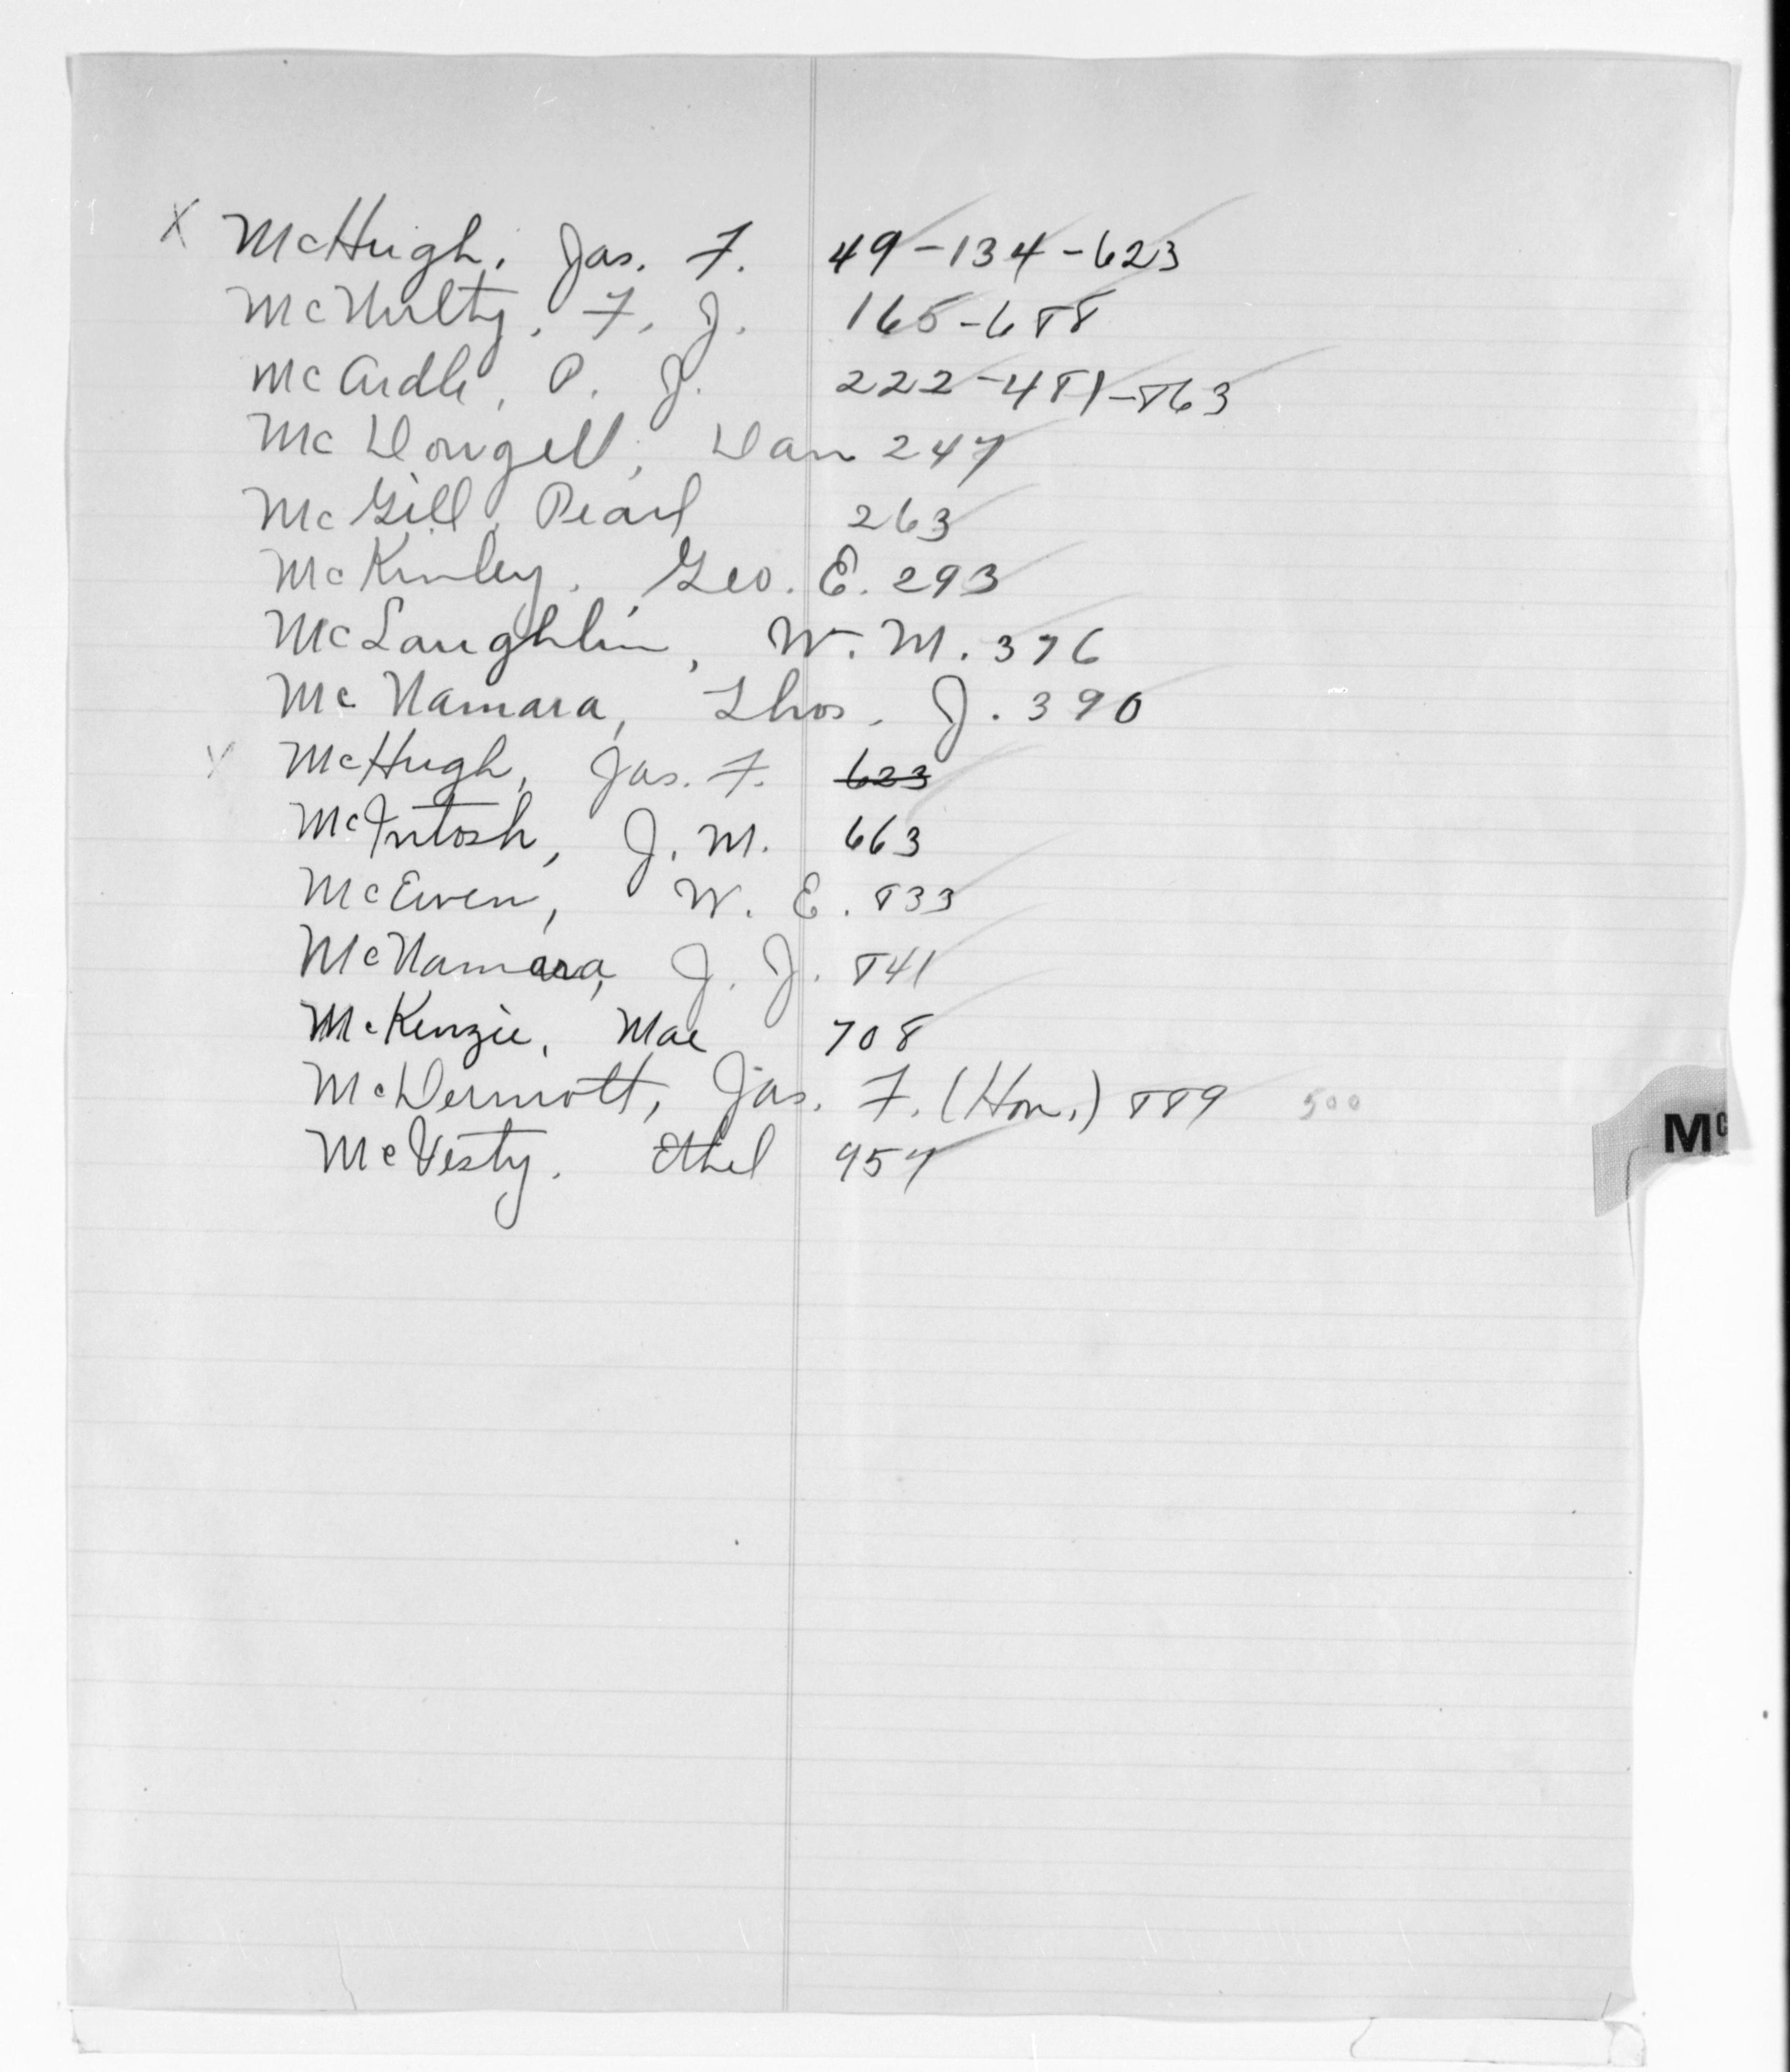 X McHugh, Jas. F. 49-134-623
McNulty, F. J. 165-688
McArdle, P. J. 222-481-863
McDougell, Dan 247
McGill, Pearl 263
McKinley, Geo. E. 293
McLaughlin, W. M. 376
McNamara, Thos. J. 390
X McHugh, Jas. F. 623
McIntosh, J. M. 663
McEwen, W. E. 833
McNamara, J. J. 841
McKenzie, Mae 708
McDermott, Jas. F. (Hon.) 889 500
Mc
McVesty, Ethel 957